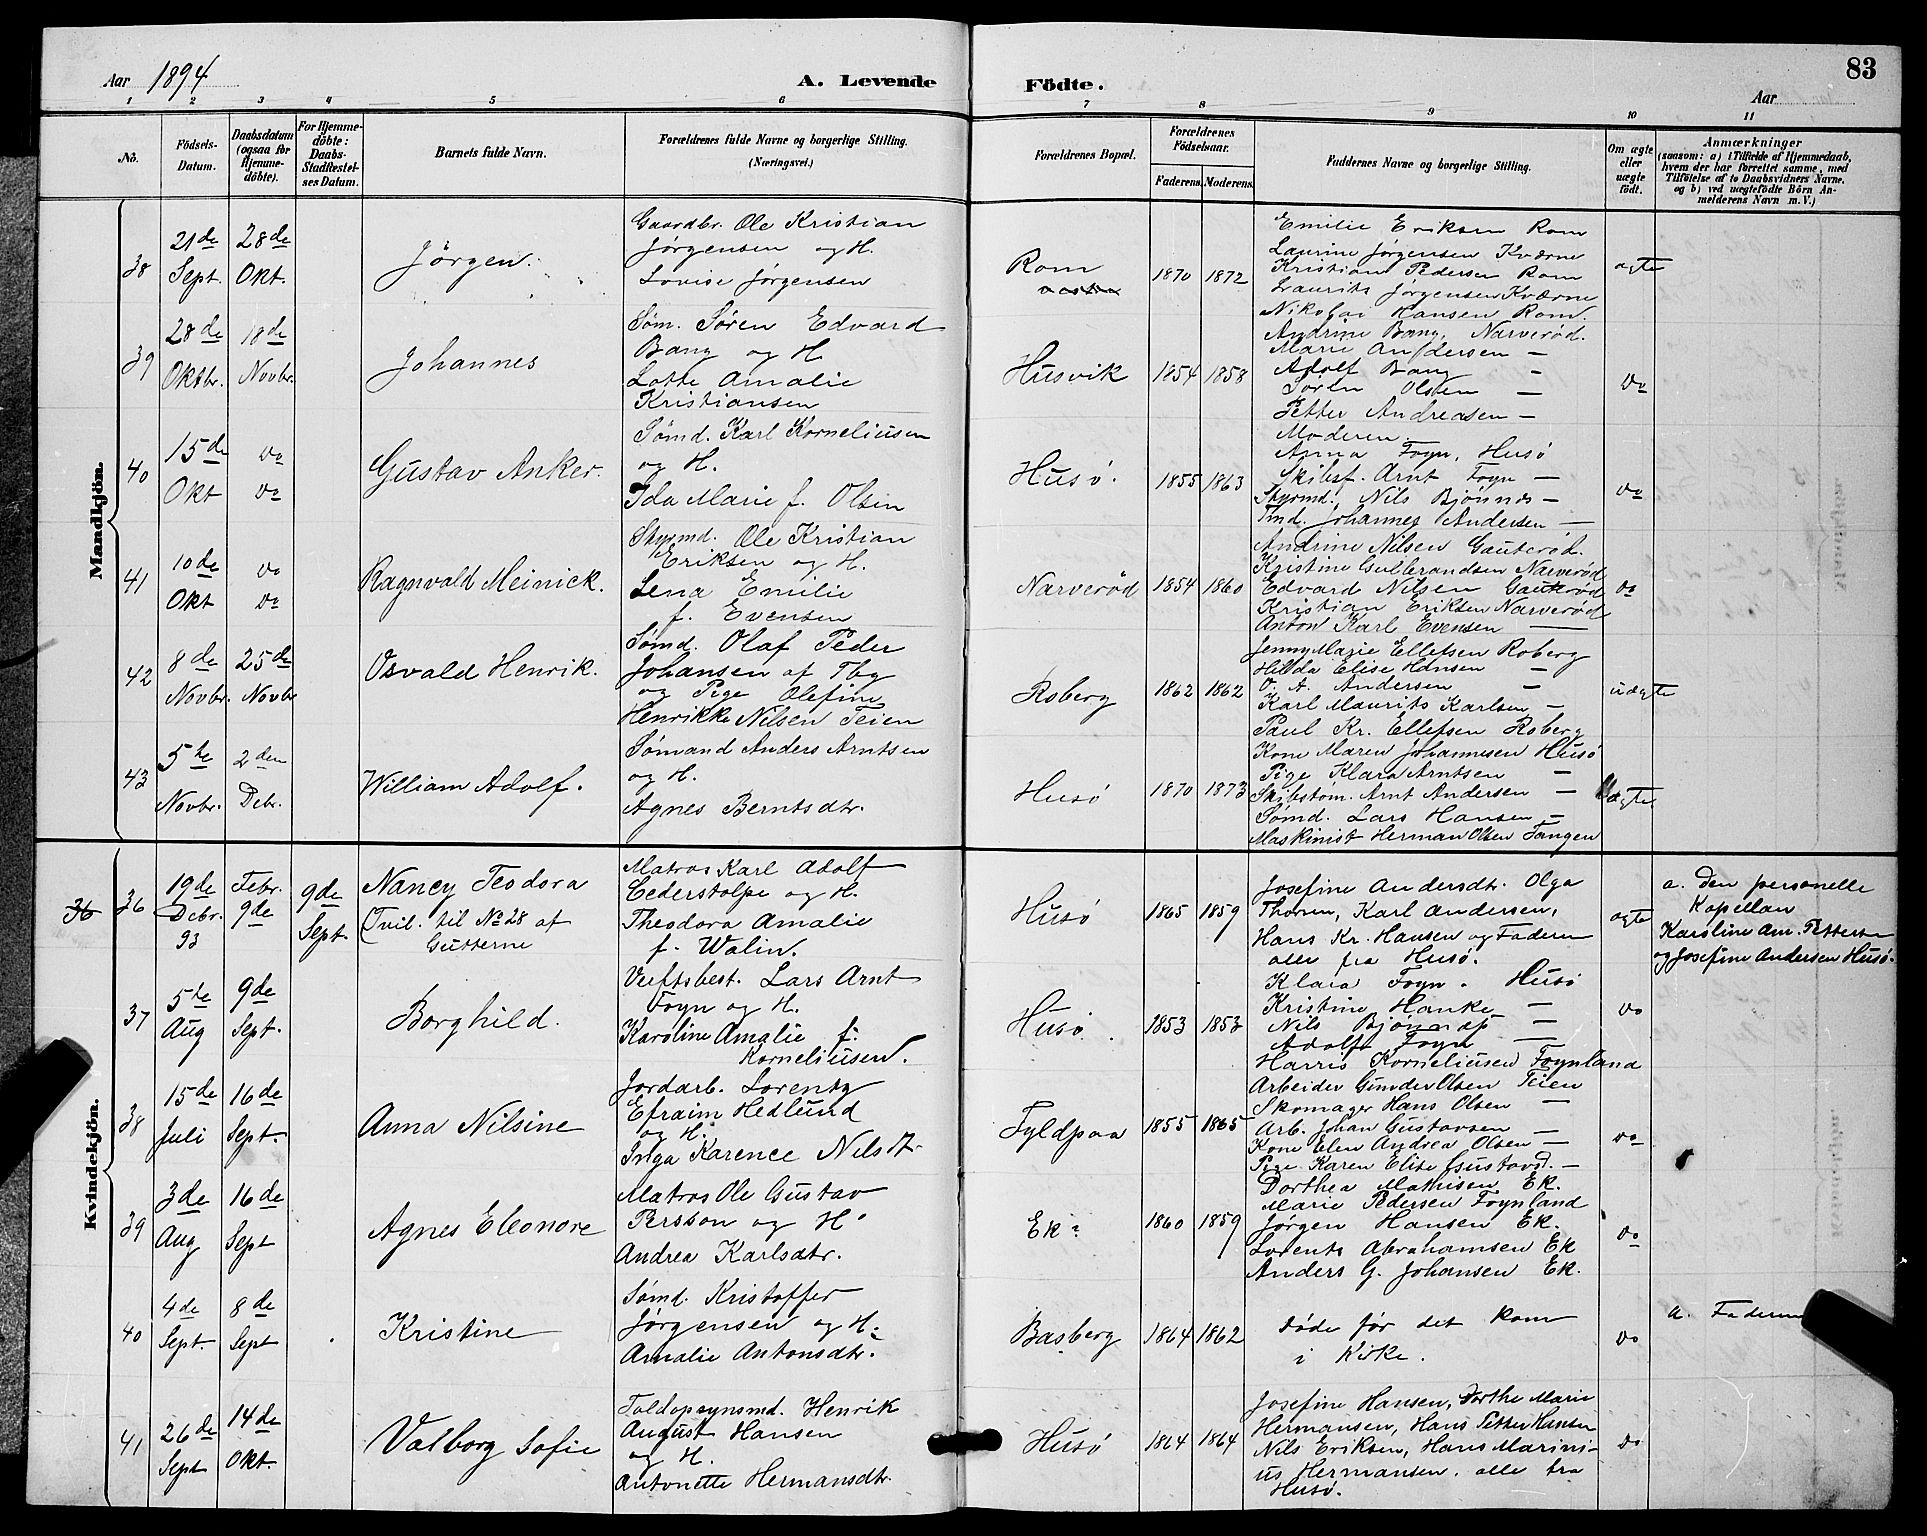 Aar 1894
A. Levende Födte.
Aar
83
1 2 3 4 5 6 7 8 9 10 11
No.
Födsels-Datum.
Daabsdatum (ogsaa for Hjemme-döbte).
For Hjemme-döbte: Daabs-Stadfæstel-ses Datum.
Barnets fulde Navn.
Forældrenes fulde Navne og borgerlige Stilling. (Næringsvei.)
Forældrenes Bopæl.
Forældrenes Födselsaar.
Faderens. Moderens.
Faddernes Navne og borgerlige Stilling.
Om ægte eller uægte födt.
Anmærkninger
(saasom: a) i Tilfælde af Hjemmedaab,
hvem der har forrettet samme, med
Tilföielse af to Daabsvidners Navne,
og b) ved uægtefödte Börn An-
melderens Navn m. V.)
Mandkjön.
38
21de Sept.
28de Okt.
Jörgen.
Gaardbr. Ole Kristian
Jørgensen og H.
Lovise Jørgensen
Rom
1870 1872
Emilie Eriksen Rom
Laurine Jørgensen Kværne
Kristian Pedersen Rom
Laurits Jørgensen Kværne
Nikolai Hansen Rom.
ægte
39
28de Oktbr.
18de Novbr.
Johannes
Søm. Søren Edvard
Bang og H.
Lotte Amalie
Kristiansen
Husvik
1854 1858
Andrine Bang, Narverød.
Marie Andersen —
Adolf Bang —
Søren Olsen —
Petter Andreasen —
do
40
15de Okt
do do
Gustav Anker.
Sømd. Karl Korneliusen
og H.
Ida Marie f. Olsen
Husö.
1855 1863
Moderen.
Anna Foyn, Husö
Skibsf. Arnt Foyn —
Styrmd. Nils Bjönnes —
Tmd. Johannes Andersen —
do
41
10de Okt
do do
Ragnvald Meinick.
Styrmd. Ole Kristian
Eriksen og H.
Lena Emilie
f. Evensen
Narverød
1854 1860
Andrine Nilsen Gauterød.
Kristine Gulbrandsen Narverød
Edvard Nilsen Gauterød
Kristian Eriksen Narverød
Anton Karl Evensen —
do
42
8de Novbr.
25de Novbr
Osvald Henrik.
Sømd. Olaf Peder
Johansen af Tbg
og Pige Olefine
Henrikke Nilsen Teien
Roberg
1862 1862
Jenny Marie Ellefsen Roberg
Hilda Elise Hansen —
O. A. Andersen —
Karl Maurits Karlsen —
Paul Kr. Ellefsen Roberg
uægte
43
5te Novbr.
2den Debr.
William Adolf.
Sømand Anders Arntsen
og H.
Agnes Berntsdtr.
Husö
1870 1873
Kone Maren Johannesen Husö
Pige Klara Arntsen —
Skibstøm. Arnt Andersen —
Sømd. Lars Hansen —
Maskinist Herman Olsen Tangen
ægte
Kvindekjön.
36 36
19de Debr. 93
Febr. 9de
9de Sept.
Nancy Teodora
(Tvil. til No 28 af
Gutterne
Matros Karl Adolf
Cederstolpe og H.
Theodora Amalie
f. Walin.
Husö
1865 1859
Josefine Andersdt. Olga
Thoren, Karl Andersen,
Hans Kr. Hansen og Faderen
alle fra Husö.
ægte
a. Den personelle
Kapellan
Karoline Am. Pettersen
og Josefine Andersen Husö.
37
5te Aug
9de Sept.
Borghild.
Verftsbest. Lars Arnt
Foyn og H.
Karoline Amalie f.
Korneliusen.
Husö.
1853 1853
Klara Foyn. Husö
Kristine Hanke —
Nils Bjönnes —
Adolf Foyn —
Harris Korneliusen Foynland
do
38
15de Juli
16de Sept.
Anna Nilsine
Jordarb. Lorentz
Efraim Hedlund
og H.
Inga Karence Nilsdt.
Fyldpaa
1855 1865
Arbeider Gunder Olsen Teien
Skomager Hans Olsen —
Arb. Johan Gustavsen —
Kone Elen Andrea Olsen —
Pige Karen Elise Gustavsd. —
do
39
3de Aug
16de Sept
Agnes Eleonore
Matros Ole Gustav
Persson og H.
Andrea Karlsdtr.
Ek.
1860 1859
Dorthea Mathisen Ek.
Marie Pedersen Foynland
Jørgen Hansen Ek.
Lorents Abrahamsen Ek
Anders G. Johansen Ek.
do
40
4de Sept.
8de Sept
Kristine
Sømd. Kristoffer
Jørgensen og H.
Amalie Antonsdtr.
Basberg
1864 1862
Døde før det kom
i Kirke.
do
a. Faderen
41
26de Sept
14de Okt.
Valborg Sofie
Toldopsynsmd. Henrik
August Hansen
og H.
Antonette Hermansdtr.
Husö
1864 1864
Josefine Hansen, Dorthe Marie
Hermansen, Hans Petter Hansen
Nils Eriksen, Hans Marini-
us Hermansen. alle fra
Husö.
do